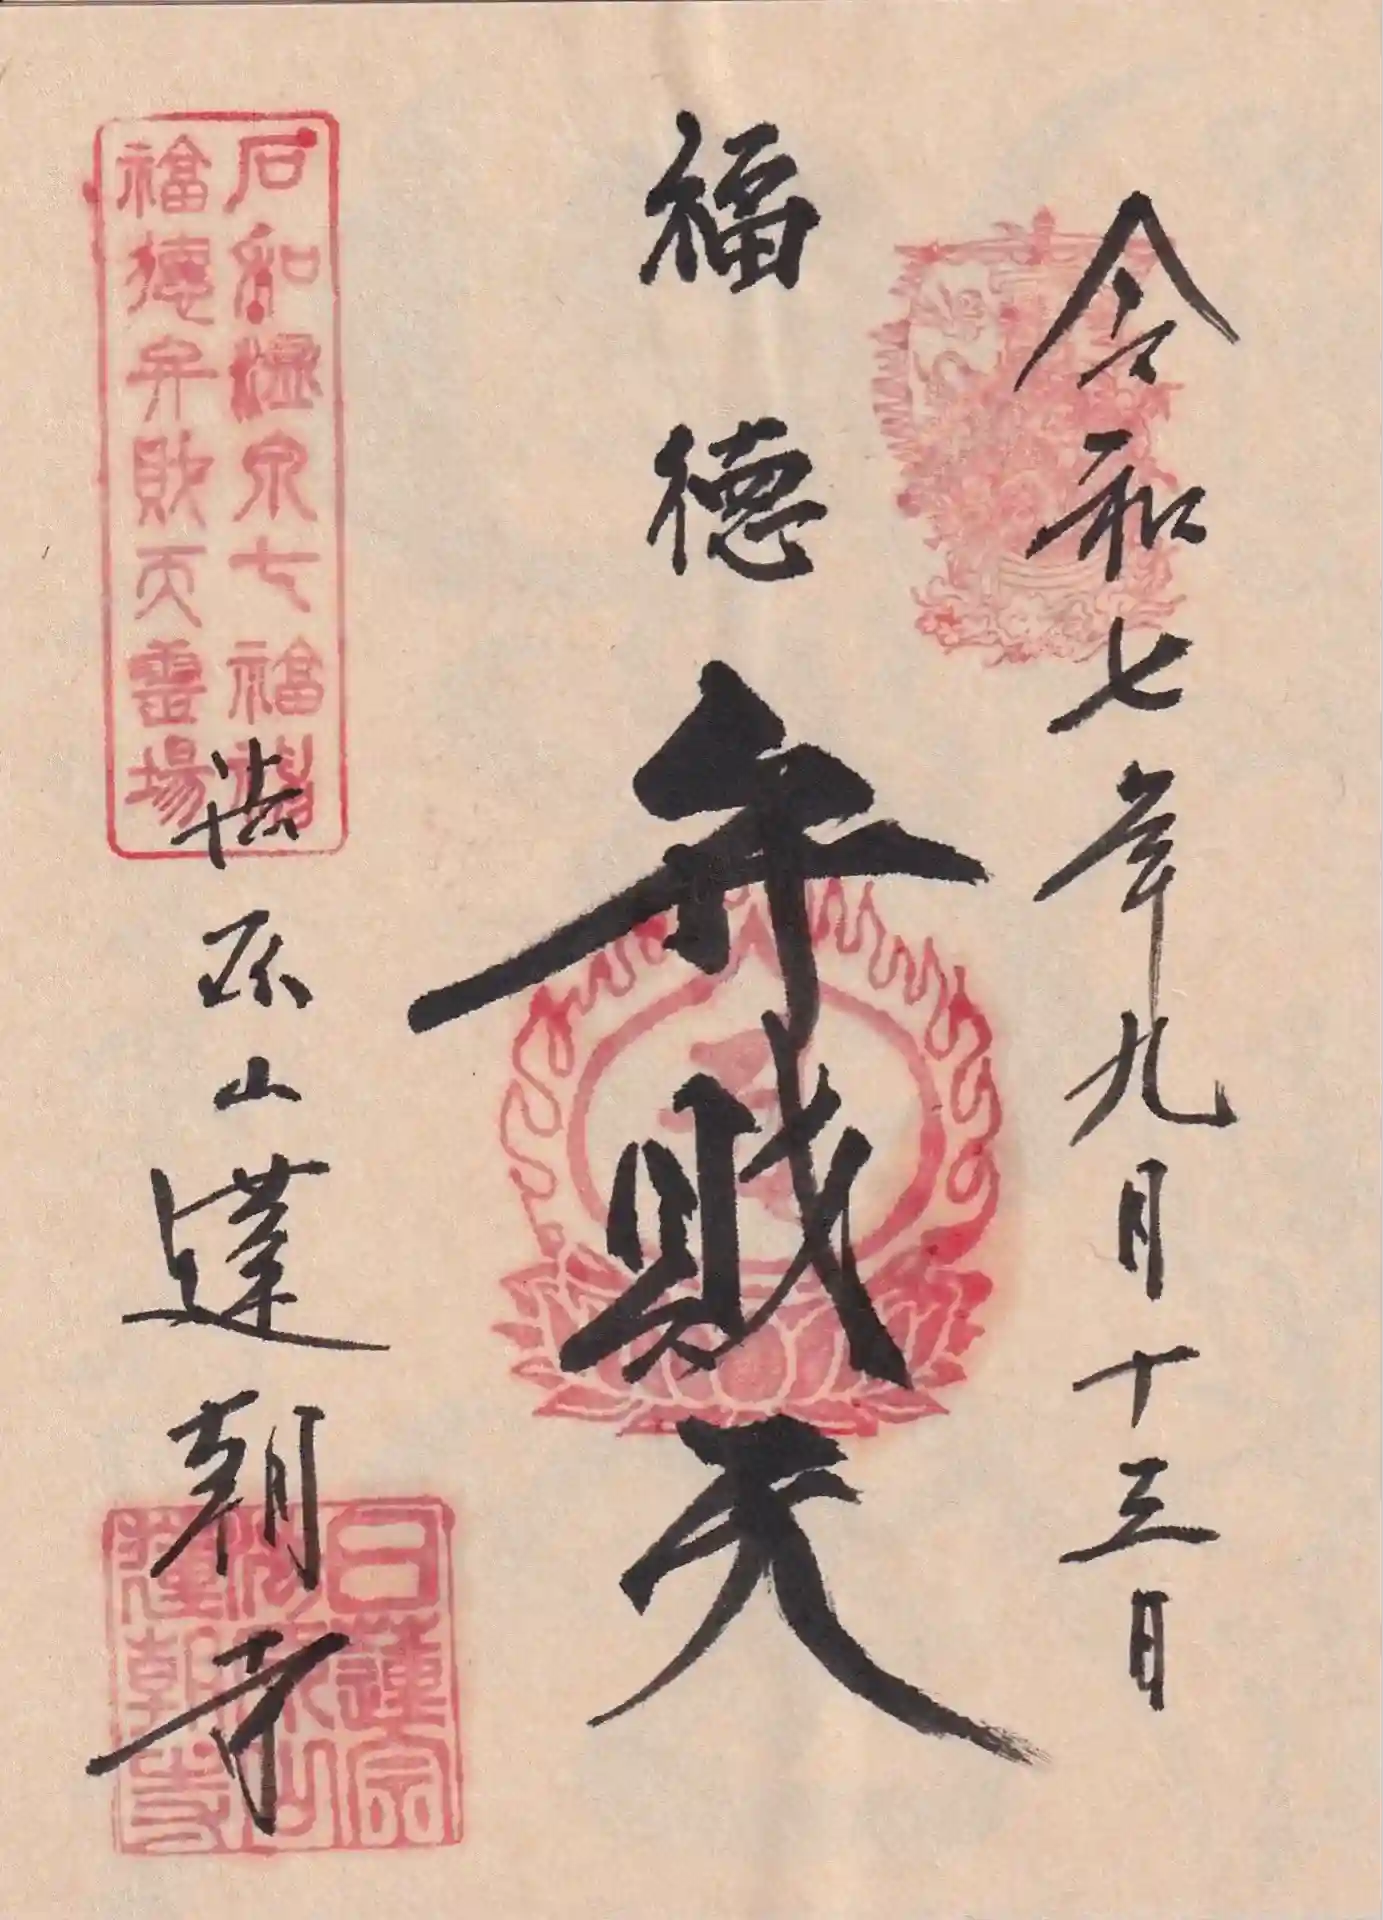 令和七年九月十三日
福徳弁財天
山蓮朝寺
石和温泉七福神
福徳弁財天霊場
日蓮宗
山
蓮朝寺